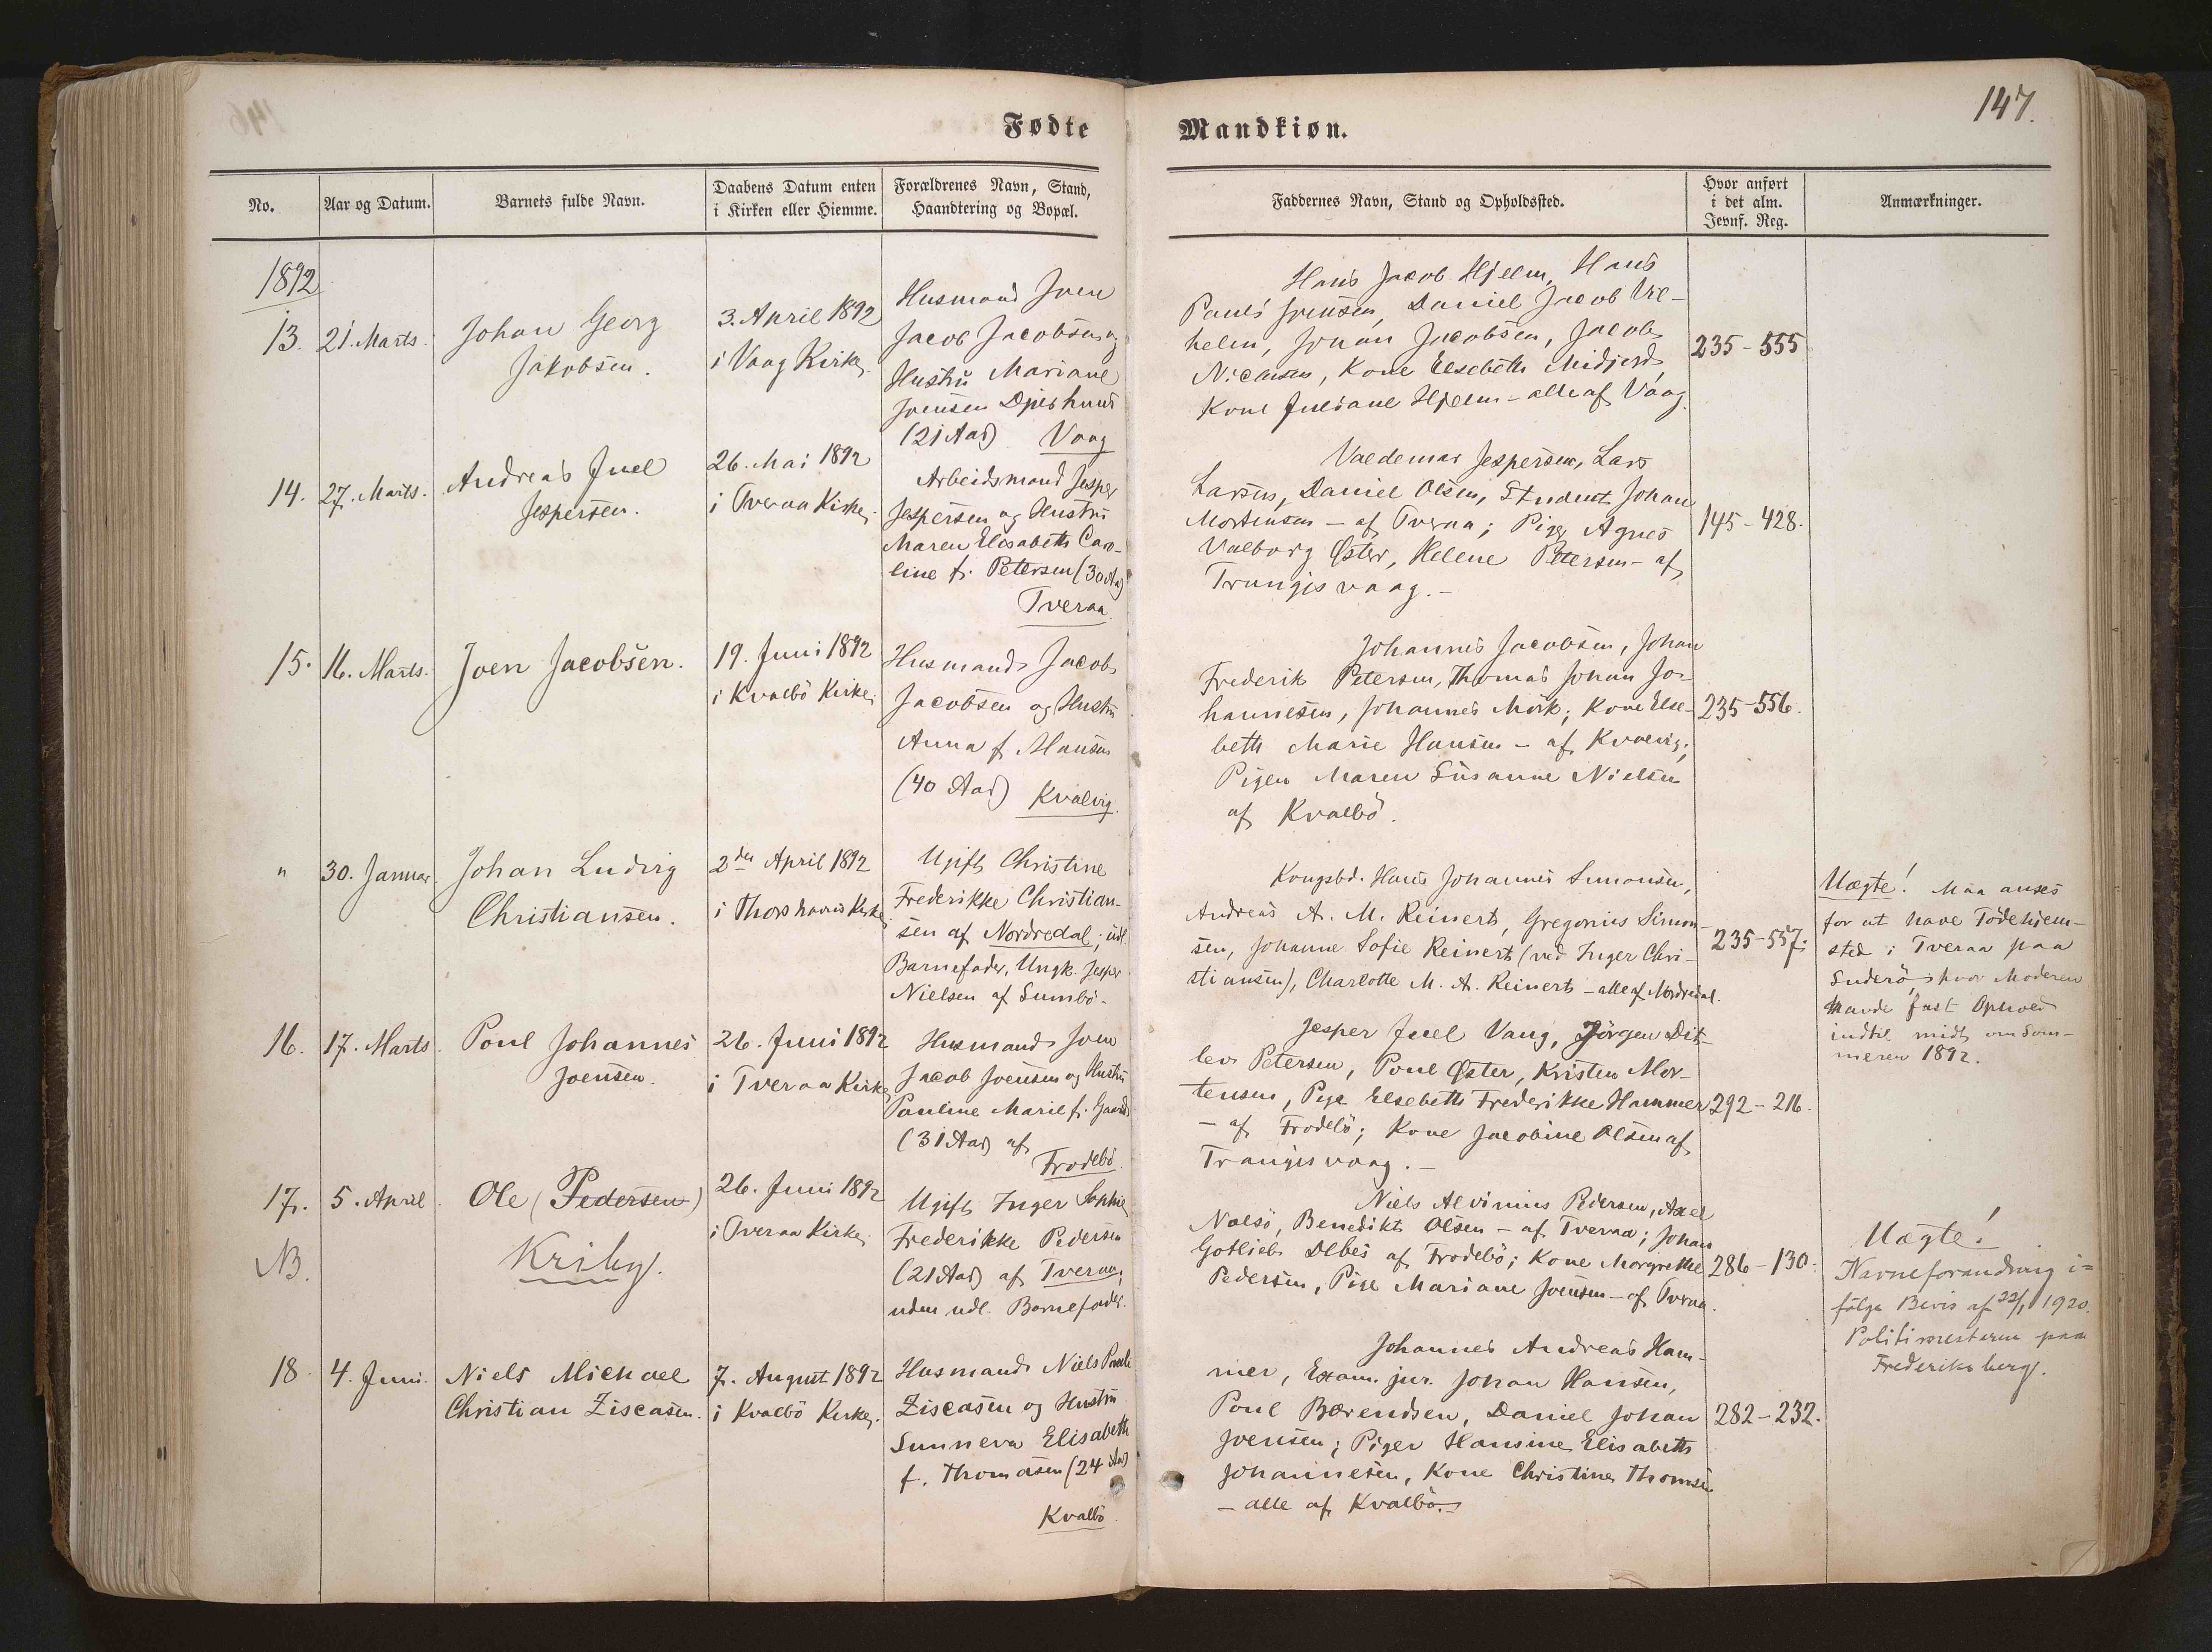 147.
Fødte
Mandkiøn.
No.
Aar og Datum.
Barnets fulde Navn.
Daabens Datum enten
i Kirken eller Hiemme.
Forældrenes Navn, Stand,
Haandtering og Bopæl.
Faddernes Navn, Stand og Opholdssted.
Hvor anført
i det alm.
Jevnf. Reg.
Anmærkninger.
1892
13.
21. Marts.
Johan Georg
Jakobsen.
3. April 1892
i Vaag Kirke.
Husmand Joen
Jacob Jacobsen og
Hustru Mariane
Joensen Djeshuus
(21 Aar) Vaag
Hans Jacob Hjelm, Hans
Pauli Joensen, Daniel Jacob Vil-
helm, Johan Jacobsen, Jacob
Niclasen, Kone Elsebeth Midjord
Kone Juliane Hjelm - alle af Vaag.
235-555
14.
27. Marts.
Andreas Juel
Jespersen.
26. Mai 1892
i Tveraa Kirke.
Arbeidsmand Jesper
Jespersen og Hustru
Maren Elisabeth Caro-
line f. Petersen (30 Aar)
Tveraa.
Valdemar Jespersen, Lars
Larsen, Daniel Olsen, Student Johan
Mortensen - af Tveraa; Piger Agnes
Valborg Øster, Helene Petersen - af
Trangisvaag. -
145-428.
15.
16. Marts.
Joen Jacobsen.
19. Juni 1892
i Kvalbö Kirke.
Husmand Jacob
Jacobsen og Hustru
Anna f. Hansen
(40 Aar) Kvalvig.
Johannes Jacobsen, Johan
Frederik Petersen, Thomas Johan Jo-
hannesen, Johannes Mörk; Kone Else-
beth Marie Hansen - af Kvalvig;
Pigen Maren Susanne Nielsen
af Kvalbö.
235-556.
"
30. Januar
Johan Ludvig
Christiansen.
2den April 1892
i Thorshavns Kirke
Ugift Christine
Frederikke Christian-
sen af Nordredal; udl.
Barnefader, Ungk. Jesper
Nielsen af Sumbö.
Kongsbd. Hans Johannes Simonsen,
Andreas A. M. Reinert, Gregorius Simon-
sen, Johanne Sofie Reinert (ved Inger Chri-
stiansen), Charlotte M. A. Reinert - alle af Nordredal.
235-557.
Uægte! Maa anses
for at have Födehjem-
sted i Tveraa paa
Suderö, hvor Moderen
havde fast Ophold
indtil midt om Som-
meren 1892.
16.
17. Marts.
Poul Johannes
Joensen.
26. Juni 1892
i Tveraa Kirke
Husmand Joen
Jacob Joensen og Hustru
Pauline Marie f. Gaard
(31 Aar) af
Frodebö.
Jesper Juel Vang, Jörgen Dit-
lev Petersen, Poul Øster, Kristen Mor-
tensen, Pige Elsebeth Frederikke Hammer
- af Frodebö; Kone Jacobine Olsen af
Trangisvaag. -
292-216.
17.
5. April.
Ole (Pedersen)
NB.
Kriby.
26. Juni 1892
i Tveraa Kirke.
Ugift Inger Sophie
Frederikke Pedersen
(21 Aar) af Tveraa;
uden udl. Barnefader.
Niels Alvinius Pedersen, Axel
Nolsö, Benedikt Olsen - af Tveraa; Johan
Gotlieb Debes af Frodebö; Kone Margrethe
Pedersen, Pige Mariane Joensen - af Tveraa.
286-130.
Uægte!
Navneforandring i-
fölge Bevis af 22/1 1920.
Politimesteren paa
Frederiksberg.
18.
4. Juni.
Niels Michael
Christian Ziscasen.
7. August 1892
i Kvalbö Kirke.
Husmand Niels Paule
Ziscasen og Hustru
Sunneva Elisabeth
f. Thomasen (24 Aar)
Kvalbö.
Johannes Andreas Ham-
mer, Exam. jur. Johan Hansen,
Poul Bærendsen, Daniel Johan
Joensen; Piger Hansine Elisabeth
Johannesen, Kone Christine Thomsen
- alle af Kvalbö. -
282-232.